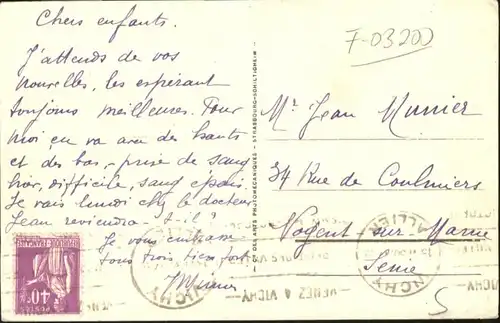 Chers enfants.
J'attends de vos
nouvelles, les espérant
toujours meilleures. Pour
moi on va avec des hauts
et des bas, prise de sang
hier, difficile, sang épais.
Je vais lundi chez le docteur.
Jean reviendra-t-il?
Je vous embrasse
tous trois bien fort
F-03200
Mr Jean Munier
34 Rue de Coulmiers
Nogent-sur-Marne
Seine
5
CIE DES ARTS PHOTOMÉCANIQUES - STRASBOURG-SCHILTIGHEIM
VENEZ A VICHY
VICHY
ALLIER
40c
POSTES